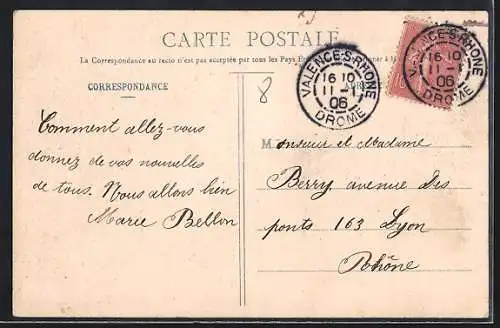 CARTE POSTALE
La Correspondance au recto n'est pas acceptée par tous les Pays
CORRESPONDANCE
8
VALENCE-S-RHONE
16 10
11 - 1
06
DROME
VALENCE-S-RHONE
16 10
11 - 1
06
DROME
Comment allez-vous
donnez de vos nouvelles
de tous. Nous allons bien
Marie Bellon
Monsieur et Madame
Berry avenue des
ponts 163 Lyon
Rhône